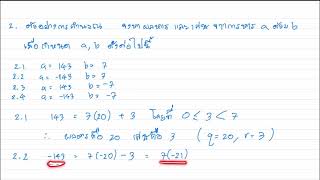 2. ตัวอย่างการคำนวณ จงหาผลหาร และเศษ จากการหาร a ด้วย b
เมื่อกำหนด a, b ดังต่อไปนี้
2.1 a = 143 b = 7
2.2 a = -143 b = 7
2.3 a = 143 b = -7
2.4 a = -143 b = -7
2.1 143 = 7(20) + 3 โดยที่ 0 ≤ 3 < 7
∴ ผลหารคือ 20 เศษคือ 3 (q = 20, r = 3)
2.2 -143 = 7(-20) - 3 = 7(-21)